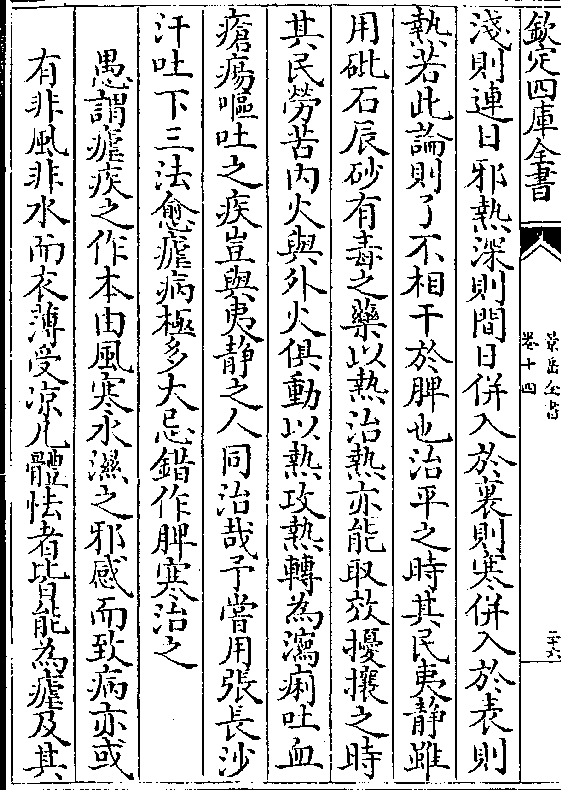 欽定四庫全書
景岳全書
卷十四
二十六
淺則連日邪熱深則間日併入於裏則寒併入於表則
熱若此論則了不相干於脾也治平之時其民夷靜雖
用砒石辰砂有毒之藥以熱治熱亦能取效擾攘之時
其民勞苦内火與外火俱動以熱攻熱轉為瀉痢吐血
瘡瘍嘔吐之疾豈與夷靜之人同治哉予嘗用張長沙
汗吐下三法愈瘧病極多大忌錯作脾寒治之
愚謂瘧疾之作本由風寒水濕之邪感而致病亦或
有非風非水而衣薄受凉凡體怯者皆能為瘧及其